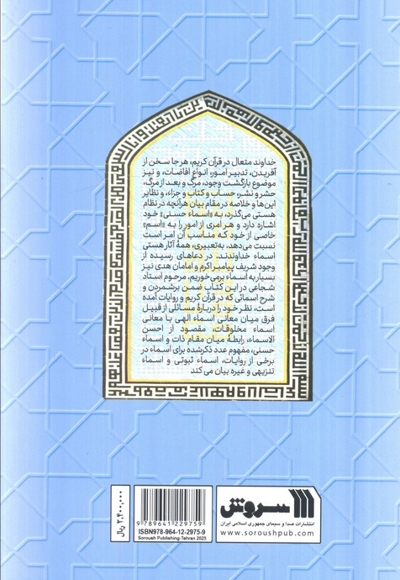 خداوند متعال در قرآن کریم، هر جا سخن از
آفریدن، تدبیر امور، انواع افاضات، و نیز
موضوع بازگشت وجود، مرگ و بعد از مرگ،
حشر و نشر، حساب و کتاب و جزاء، و نظایر
این‌ها و خلاصه در مقام بیان هر آنچه در نظام
هستی می‌گذرد، به «اسماء حسنی» خود
اشاره دارد و هر امری از امور را به «اسم»
خاصی از خود که مناسب آن امر است
نسبت می‌دهد. به‌تعبیری، همهٔ آثار هستی
اسماء خداوندند. در دعاهای رسیده از
وجود شریف پیامبر اکرم و امامان هدی نیز
بسیار به اسماء برمی‌خوریم. مرحوم استاد
شجاعی در این کتاب ضمن برشمردن و
شرح اسمائی که در قرآن کریم و روایات آمده
است، نظر خود را دربارهٔ مسائلی از قبیل
فرق میان معانی اسماء الهی با معانی
اسماء مخلوقات، مقصود از احسن
الاسماء، رابطهٔ میان مقام ذات و اسماء
حسنی، مفهوم عدد ذکرشده برای اسماء در
برخی از روایات، اسماء ثبوتی و اسماء
تنزیهی و غیره بیان می‌کند
سروش
انتشارات صدا و سیمای جمهوری اسلامی ایران
www.soroushpub.com
9 789641 229759
ISBN978-964-12-2975-9
Soroush Publishing-Tehran 2025
۲,۴۰۰,۰۰۰ ریال